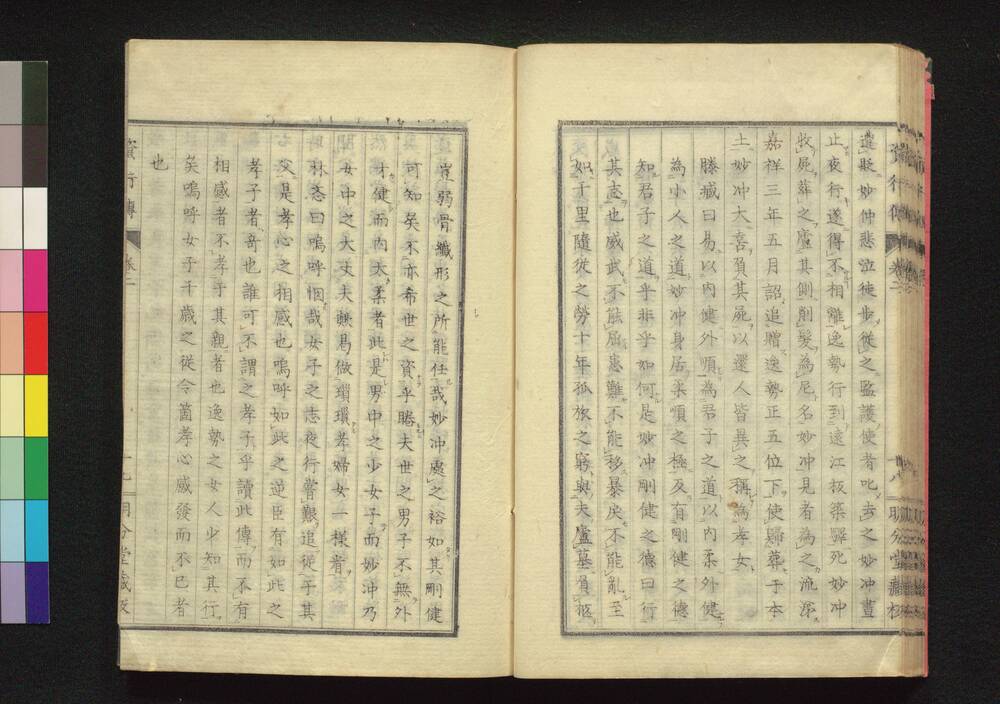 遣貶妙冲悲泣徒步從之監護使者叱去之妙冲晝
止夜行遂得不相離逸勢行到遠江板築驛死妙冲
收屍葬之廬其側削髮為尼名妙冲見者為之流涕
嘉祥三年五月詔追贈逸勢正五位下使歸葬于本
土妙冲大喜負其屍以還人皆異之稱為孝女
滕臧曰易以內健外順為君子之道以內柔外健
為小人之道妙冲身居柔順之極反有剛健之德
知君子之道乎非乎如何是妙冲剛健之德曰行
其志也威武不能屈患難不能移暴戾不能亂至
如千里隨從之勞十年孤旅之窮與夫廬墓負柩
豈弱骨纖形之所能任哉妙冲處之裕如其剛健
可知矣不亦希世之資乎賸夫世之男子不無外
才健而內太柔者此是男中之少女子而妙冲乃
女中之大丈夫賸曷做瑣環孝婦女一樣看
林恣曰嗚呼悃哉女子之志夜行嘗艱追從于其
父是孝心之相感也嗚呼如此之逆臣有如此之
孝子者奇也誰可不謂之孝子乎讀此傳而不有
相感者不孝于其親者也逸勢之女人少知其行
矣嗚呼女子千歲之從令箇孝心感發而不已者
也